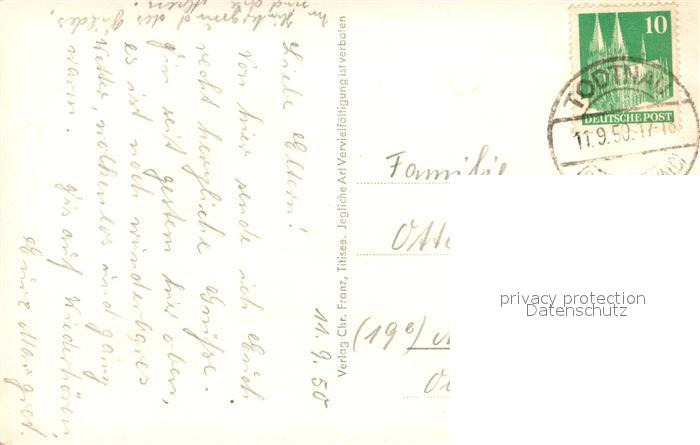 11.9.50
Liebe Eltern!
Von hier sende ich Euch
recht herzliche Grüße.
Bin seit gestern hier oben,
es ist noch wunderbares
Wetter, wolkenlos und ganz
warm.
Bis auf Wiederhören,
Eure Margret.
Im Hintergrund des Bildes,
sind die
Verlag Chr. Franz, Titisee. Jegliche Art Vervielfältigung ist verboten
10
DEUTSCHE POST
TODTNAU
11.9.50.17-18
Familie
Otto
(19e)
privacy protection
Datenschutz